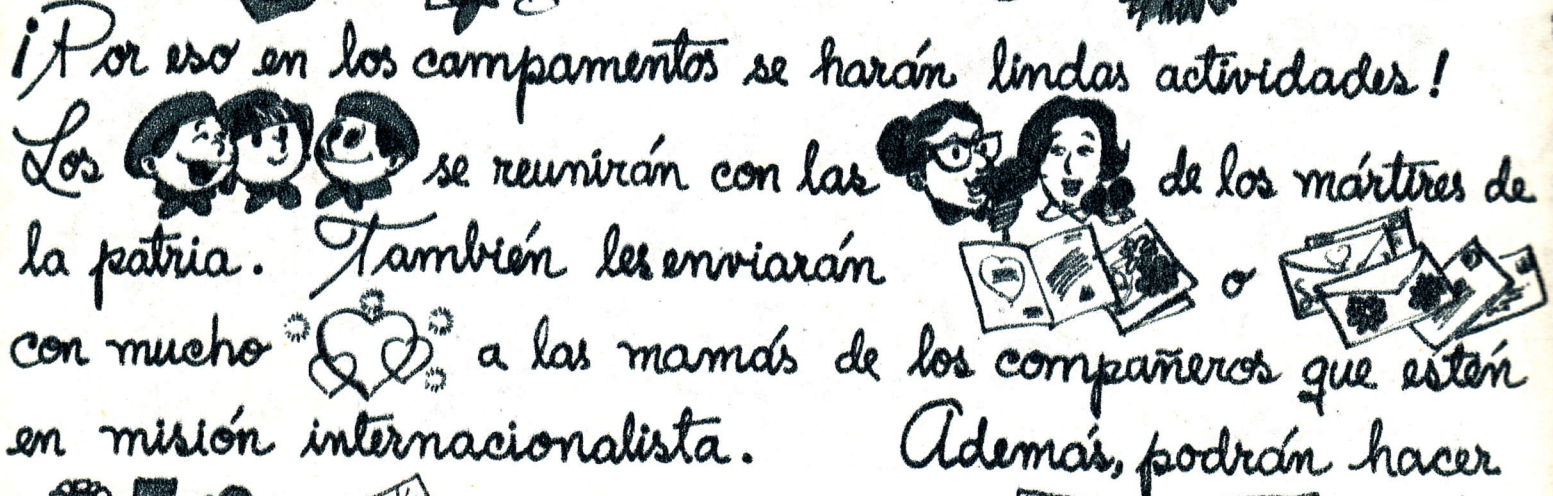 ¡Por eso en los campamentos se harán lindas actividades!
Los se reunirán con las de los mártires de
la patria. También les enviarán o
con mucho a las mamás de los compañeros que estén
en misión internacionalista. Además, podrán hacer